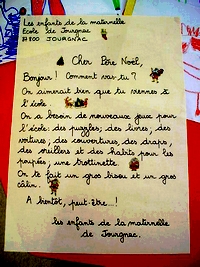 Les enfants de la maternelle
Ecole de Jourgnac
87800 JOURGNAC
Cher Père Noël,
Bonjour ! Comment vas-tu ?
On aimerait bien que tu viennes à
l'école.
On a besoin de nouveaux jeux pour
l'école : des puzzles; des livres; des
voitures; des couvertures, des draps,
des oreillers et des habits pour les
poupées; une trottinette.
On te fait un gros bisou et un gros
câlin.
A bientôt, peut-être...!
les enfants de la maternelle
de Jourgnac.